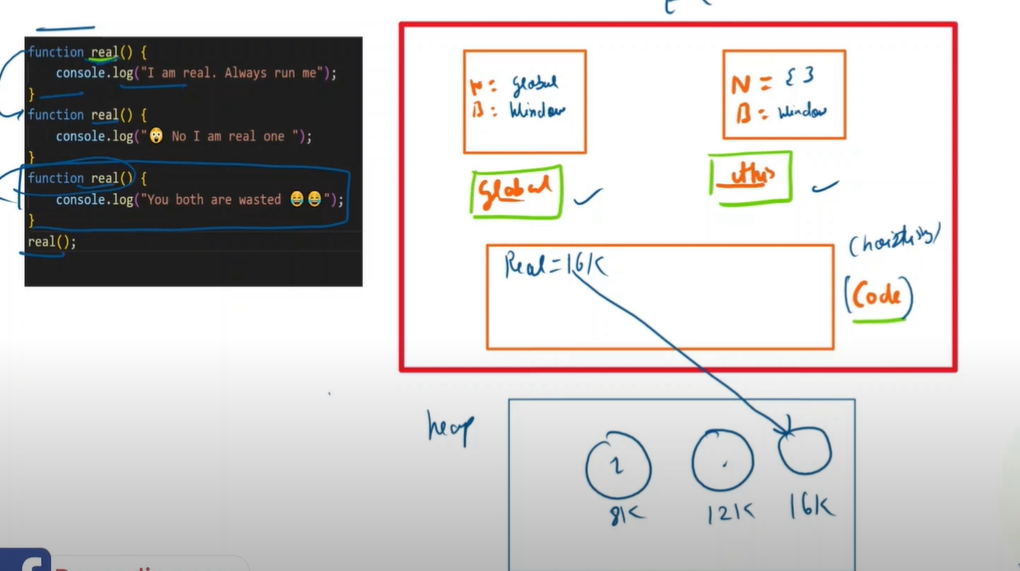 function real() {
console.log("I am real. Always run me");
}
function real() {
console.log("😲 No I am real one ");
}
function real() {
console.log("You both are wasted 😂😂");
}
real();
N: Global
B: Window
Global
N = { }
B: Window
this
Real = 16K
(Code)
heap
1
8K
12K
16K